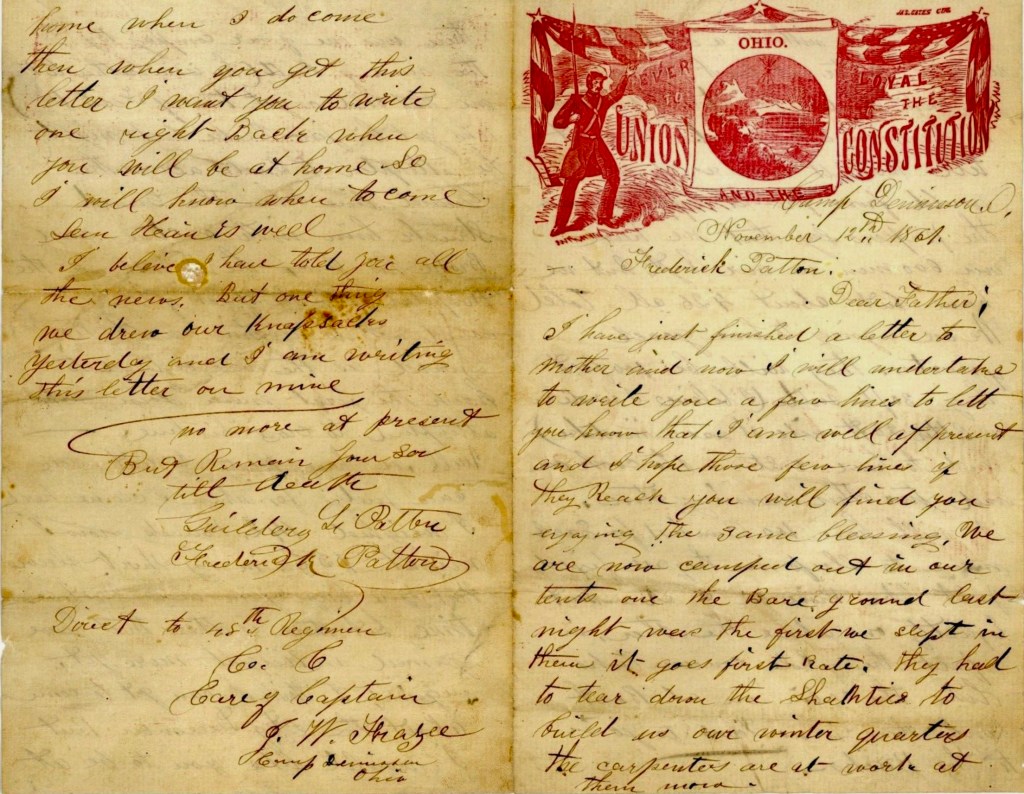 home when I do come
then when you get this
letter I want you to write
one right Back when
you will be at home So
I will know when to come
is well
I beleve I have told you all
the news. But one thing
we drew our Knapsacks
yesterday and I am writing
this letter on mine
no more at present
But Remain your Son
till death
Patton
Frederick Patton
Direct to 48th Regimen
Co. C
Care of Captain
J. W. Frazee
Camp Dennison
Ohio
J.R. CATES CIN.
OHIO.
EVER LOYAL
TO THE
UNION CONSTITUTION
AND THE
Camp Dennison O,
November 12th 1861.
Frederick Patton.
Dear Father;
I have just finished a letter to
mother and now I will undertake
to write you a few lines to lett
you know that I am well at present
and I hope those few lines if
they Reach you will find you
enjoying the same blessing, We
are now camped out in our
tents one the Bare ground last
night was the first we slept in
them it goes first Rate. they had
to tear down the Shanties to
build us our winter quarters
the carpenters are at work at
them now.